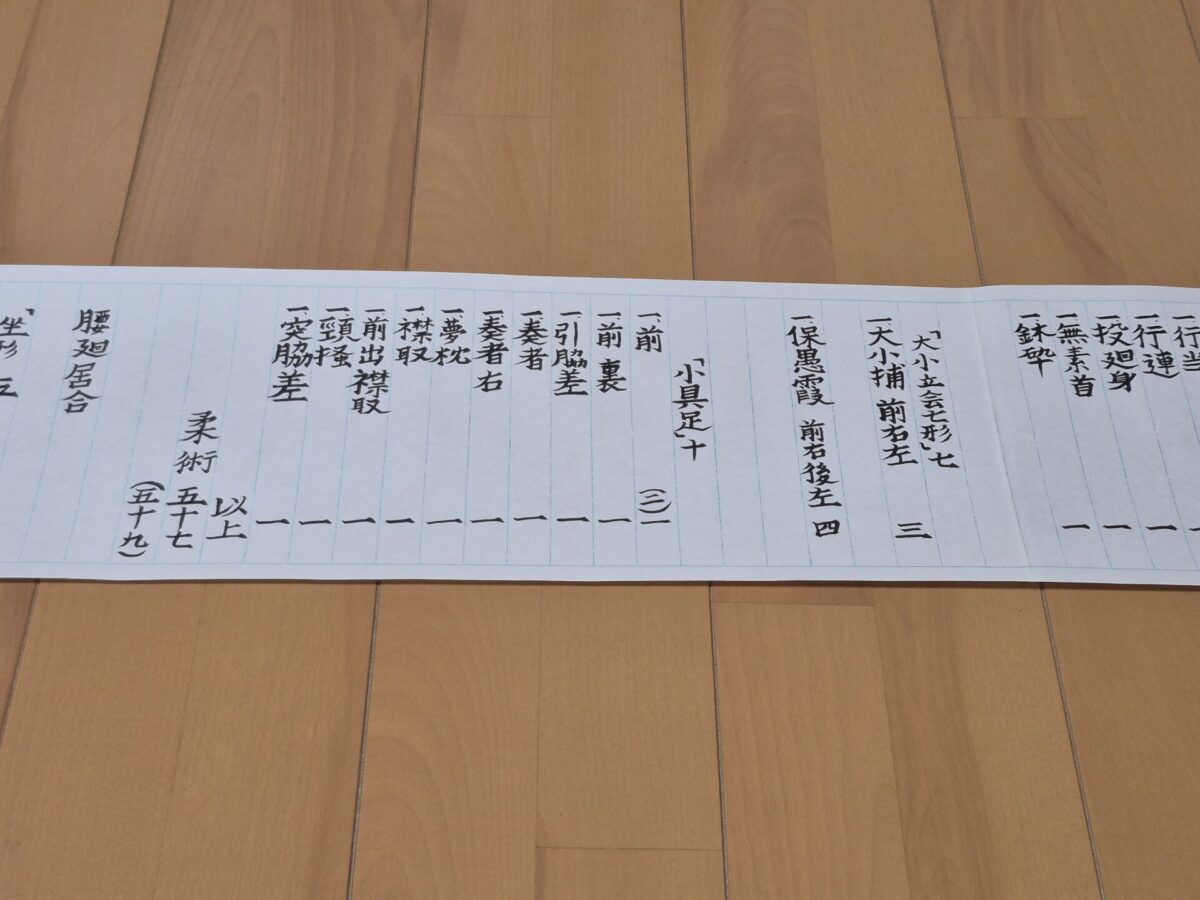 一、行当
一、行連 一
一、投廻身 一
一、無素首 一
一、鉢砕
「大小立会七形」七
一、大小捕 前右左 三
一、保愚霞 前右後左 四
「小具足」十
一、前 (三)一
一、前裏 一
一、引脇差 一
一、奏者 一
一、奏者右 一
一、夢枕 一
一、襟取 一
一、前出襟取 一
一、頸掻 一
一、突脇差 一
以上
柔術 五十七
(五十九)
腰廻居合
「坐形 五